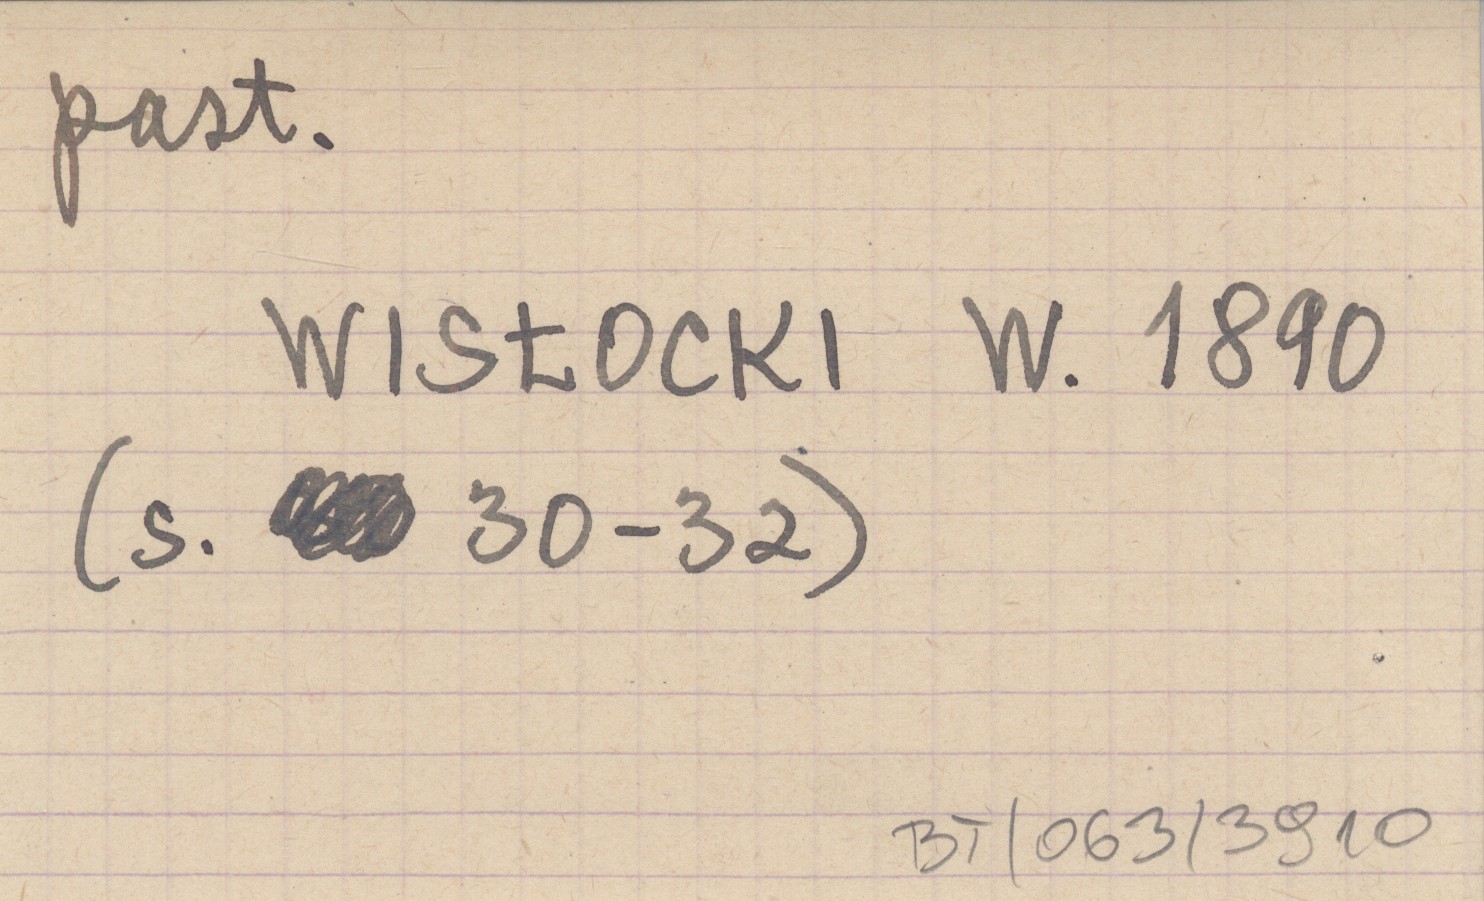 past.
WISŁOCKI W. 1890
(s. 30-32)
BT/063/3910